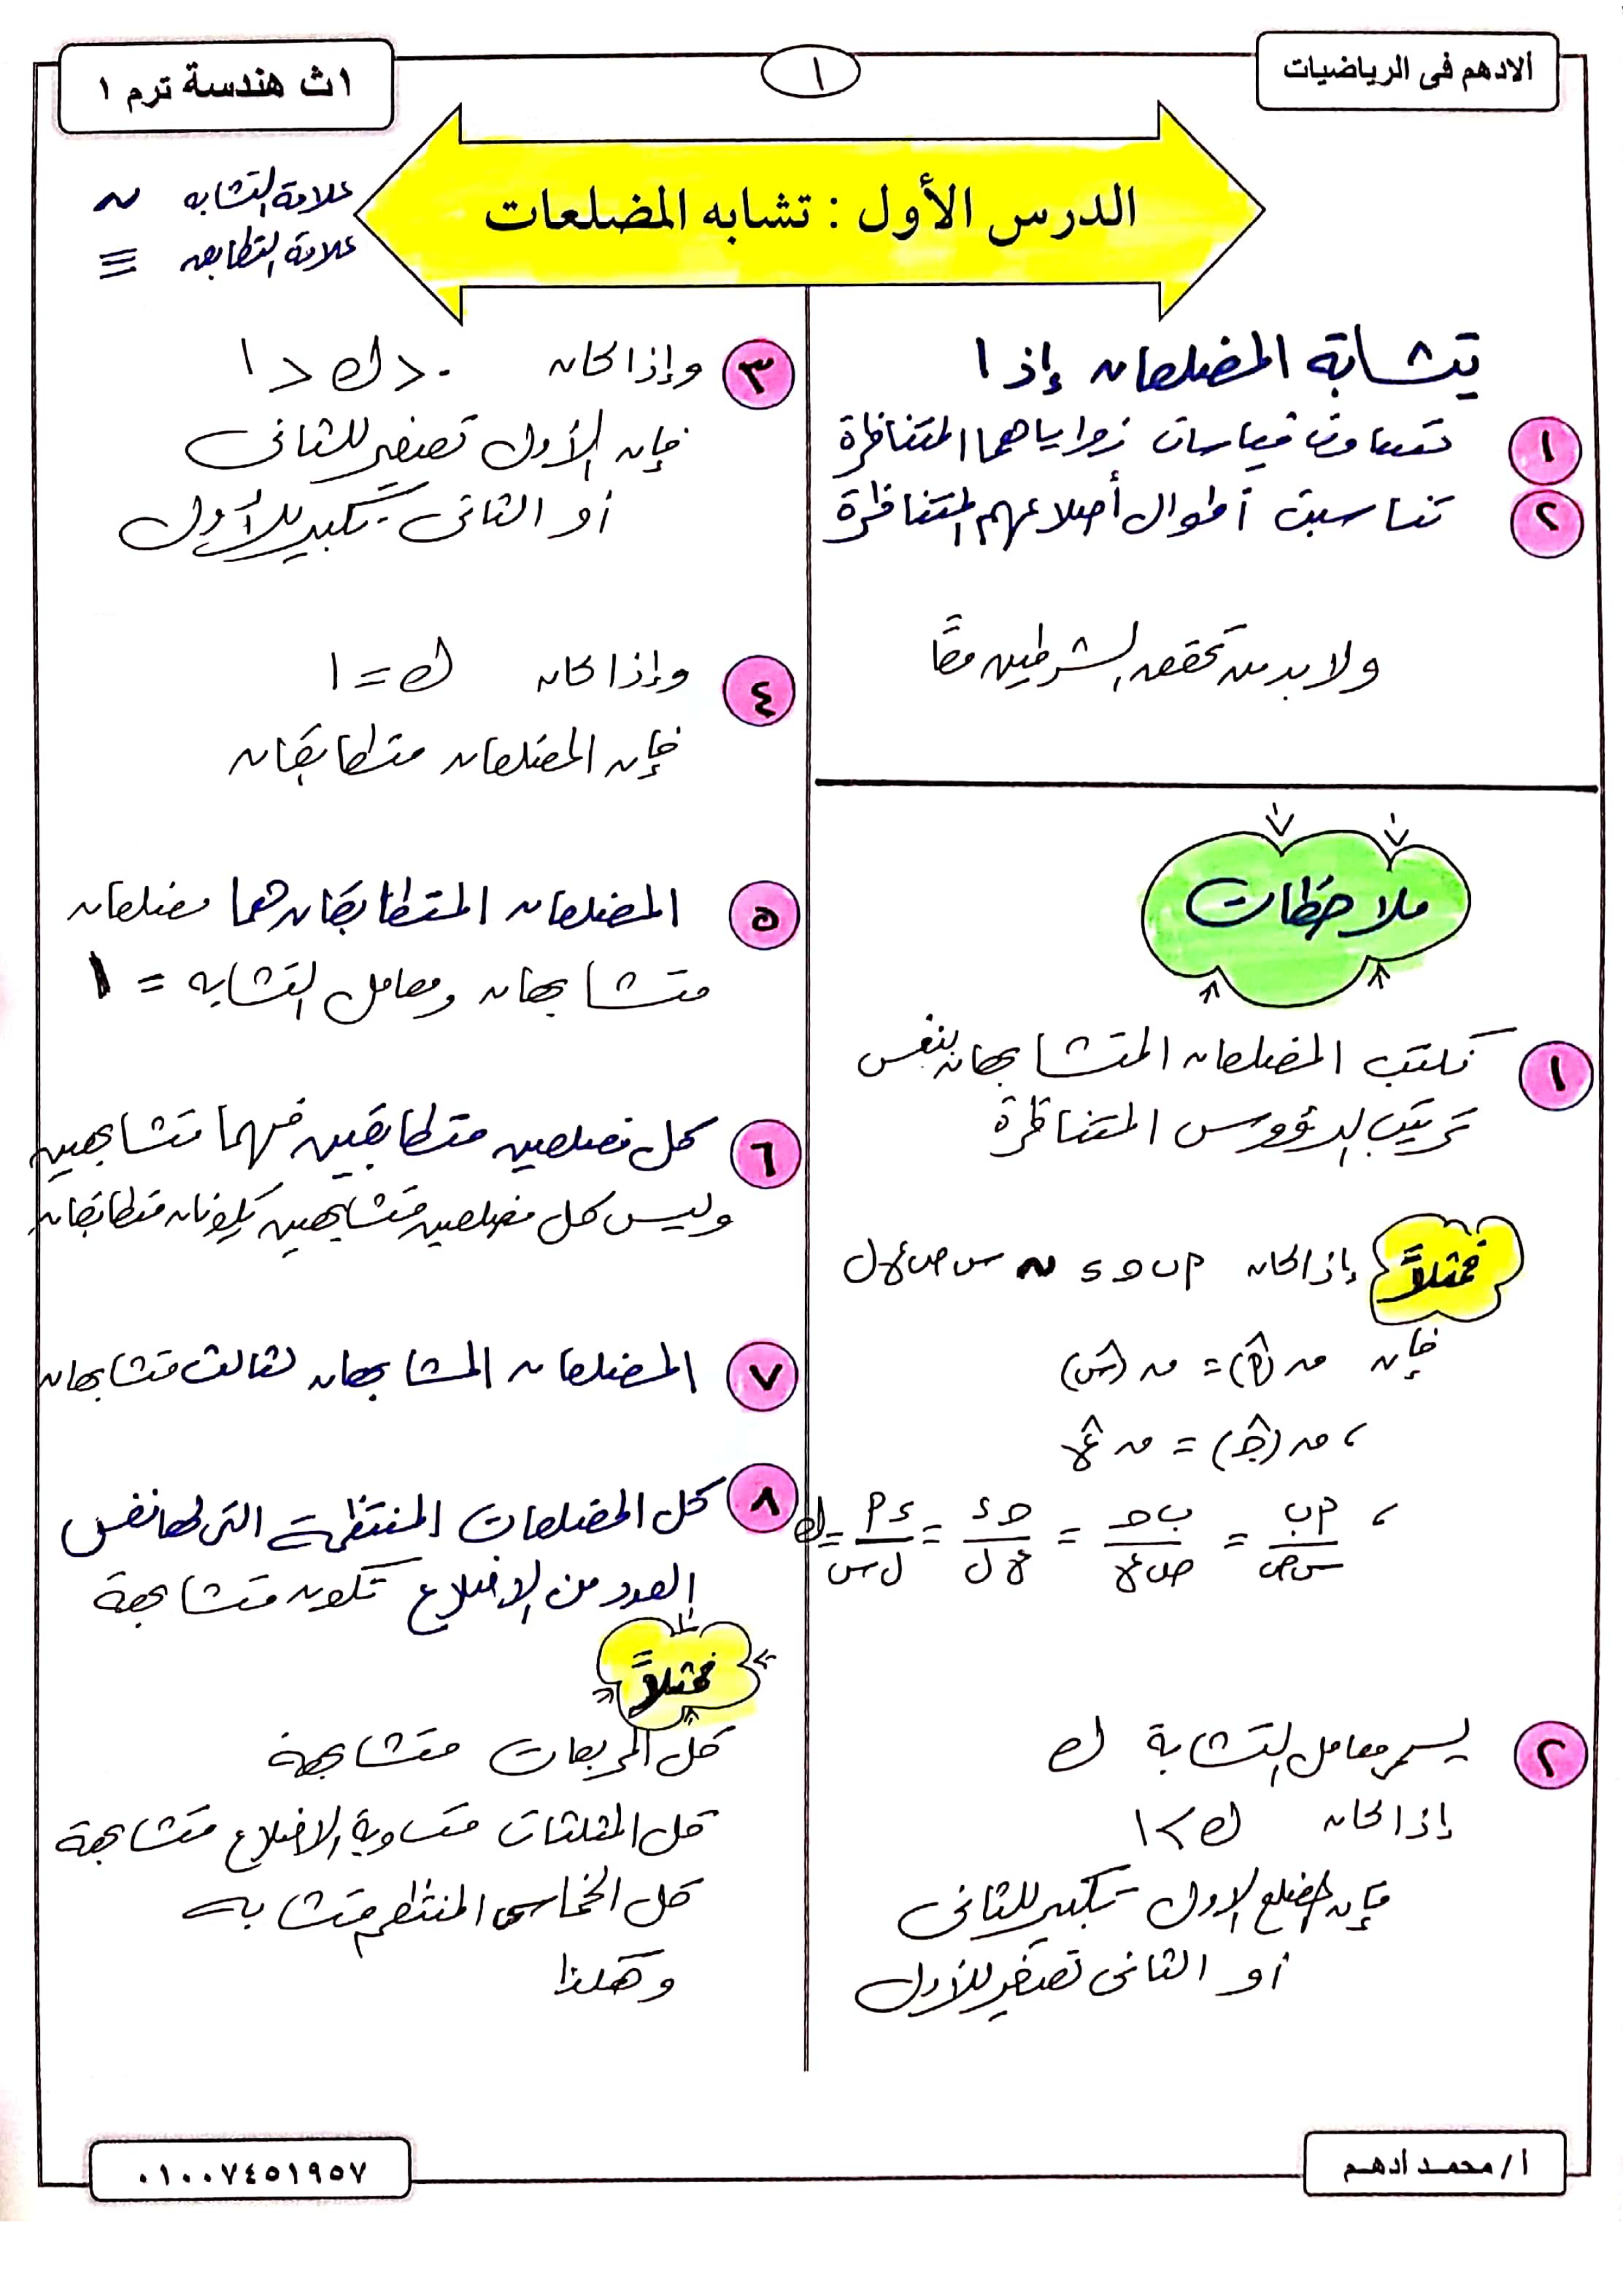 الادهم فى الرياضيات
١
١ث هندسة ترم ١
الدرس الأول : تشابه المضلعات
علامة التشابه ~
علامة التطابق ≡
يتشابة المضلعان إذا
١ تساوت قياسات زواياهما المتناظرة
٢ تناسبت أطوال أضلاعهم المتناظرة
ولابد من تحقق الشرطين معًا
ملاحظات
١ نكتب المضلعان المتشابهان بنفس
ترتيب الرؤوس المتناظرة
فمثلاً إذا كان م ب ح ء ~ س ص ع ل
فإن ق(م̂) = ق(س̂)
، ق(ح̂) = ق ع̂
، م ب / س ص = ب ح / ص ع = ح ء / ع ل = ء م / ل س = ك
٢ يسمى معامل التشابة ك
إذا كان ك > ١
فإن المضلع الاول تكبير للثانى
أو الثانى تصغير للأول
٣ وإذا كان ٠ < ك < ١
فإن الأول تصغير للثانى
أو الثانى تكبير للأول
٤ وإذا كان ك = ١
فإن المضلعان متطابقان
٥ المضلعان المتطابقان هما مضلعان
متشابهان ومعامل التشابه = ١
٦ كل مضلعين متطابقين فهما متشابهين
وليس كل مضلعين متشابهين يكونان متطابقان
٧ المضلعان المشابهان لثالث متشابهان
٨ كل المضلعات المنتظمة التى لها نفس
العدد من الاضلاع تكون متشابهة
فمثلاً
كل المربعات متشابهة
كل المثلثات متساوية الاضلاع متشابهة
كل الخماسى المنتظم متشابه
وهكذا
أ / محمد ادهم
٠١٠٠٧٤٥١٩٥٧